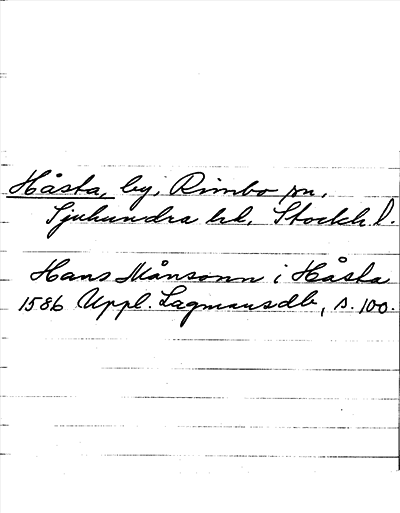 Håsta, by, Rimbo sn,
Sjuhundra hd, Stockh. l.
Hans Månsonn i Håsta
1586 Uppl. Lagmansdb, s. 100.